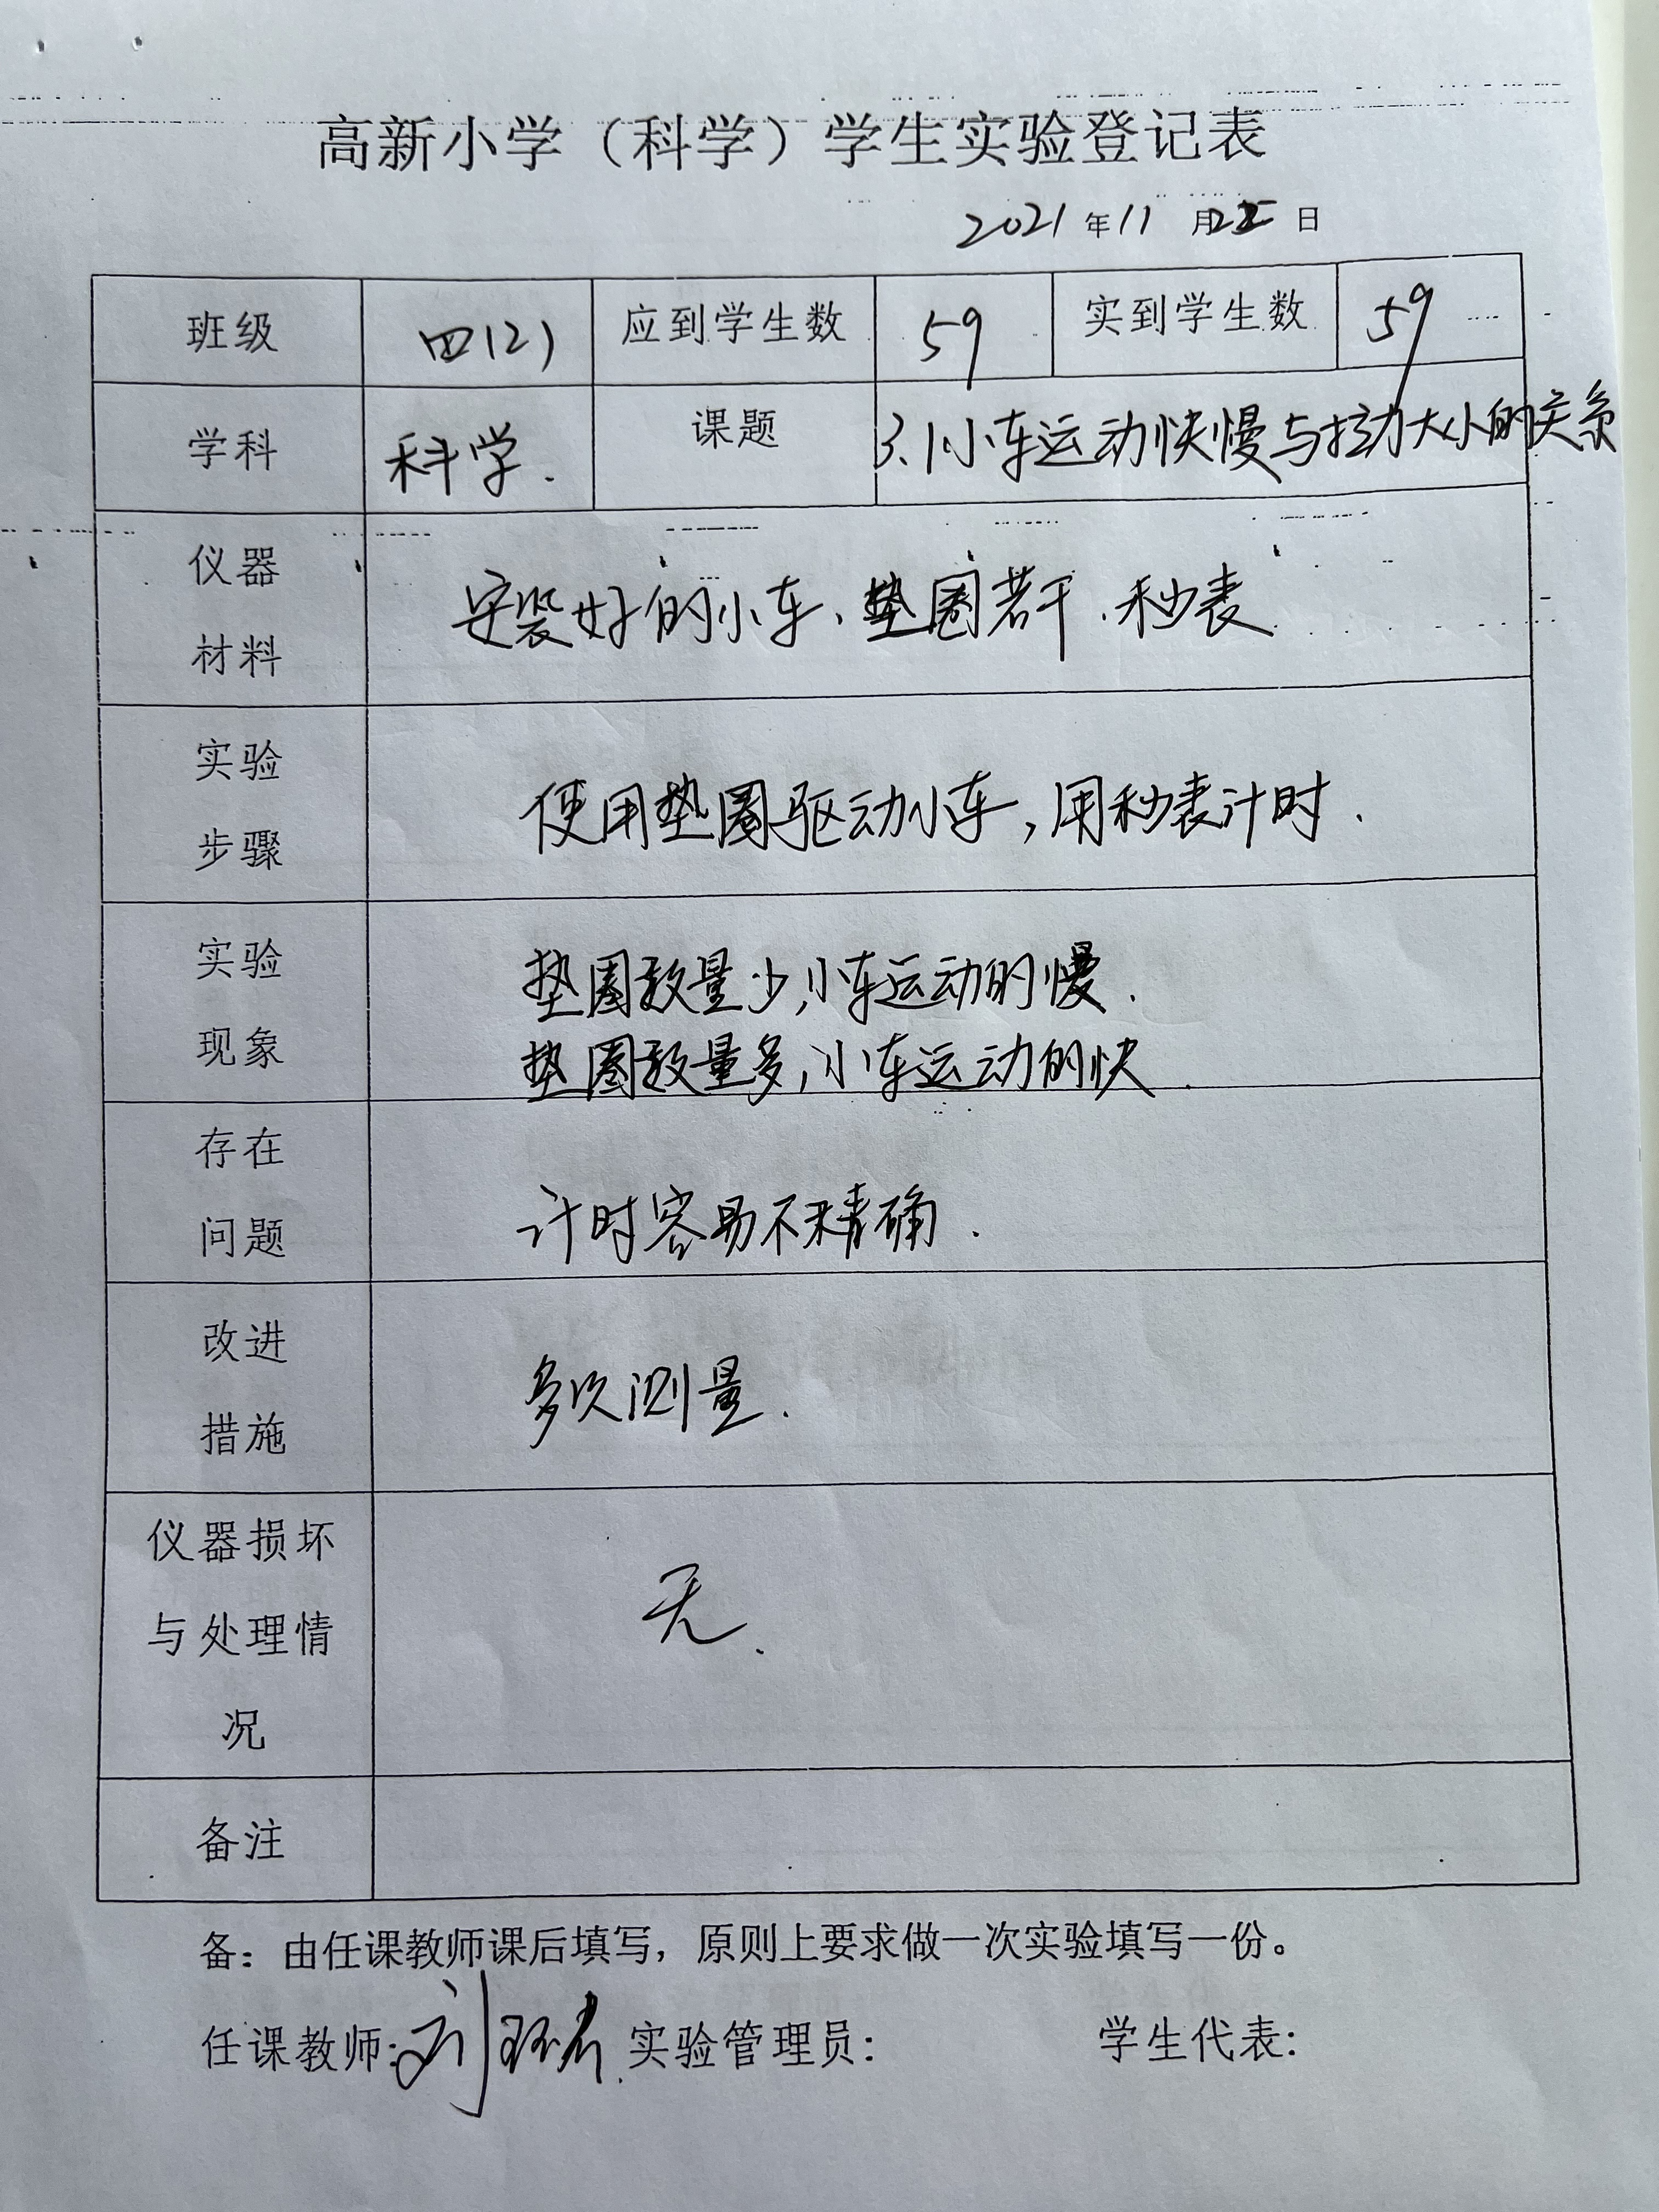 高新小学（科学）学生实验登记表
2021年11月 日
班级 四(2) 应到学生数 59 实到学生数 59
学科 科学. 课题 3.1小车运动快慢与拉力大小的关系
仪器
材料
安装好的小车、垫圈若干、秒表
实验
步骤
使用垫圈驱动小车,用秒表计时.
实验
现象
垫圈数量少,小车运动的慢.
垫圈数量多,小车运动的快.
存在
问题
计时容易不精确.
改进
措施
多次测量.
仪器损坏
与处理情
况
无.
备注
备：由任课教师课后填写，原则上要求做一次实验填写一份。
任课教师:刘 实验管理员: 学生代表: